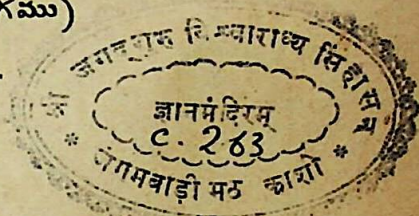 గము)
श्री जगद्गुरु विश्वाराध्य सिंहासन
ज्ञानमंदिरम्
C. 263
* जंगमवाड़ी मठ काशी *